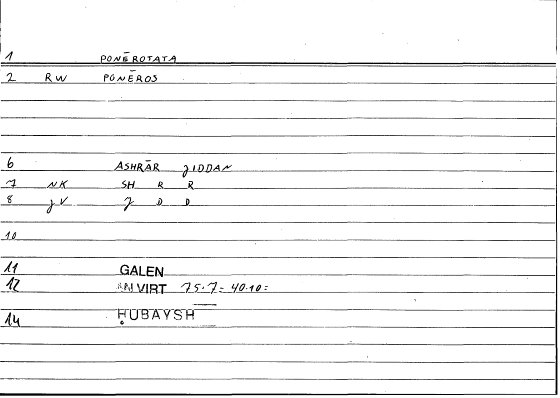 1 PONĒROTATA
2 RW PONĒROS
6 ASHRĀR JIDDAN
7 NK SH R R
8 JV J D D
10
11 GALEN
12 AN VIRT 75.7= 40.10=
14 ḤUBAYSH